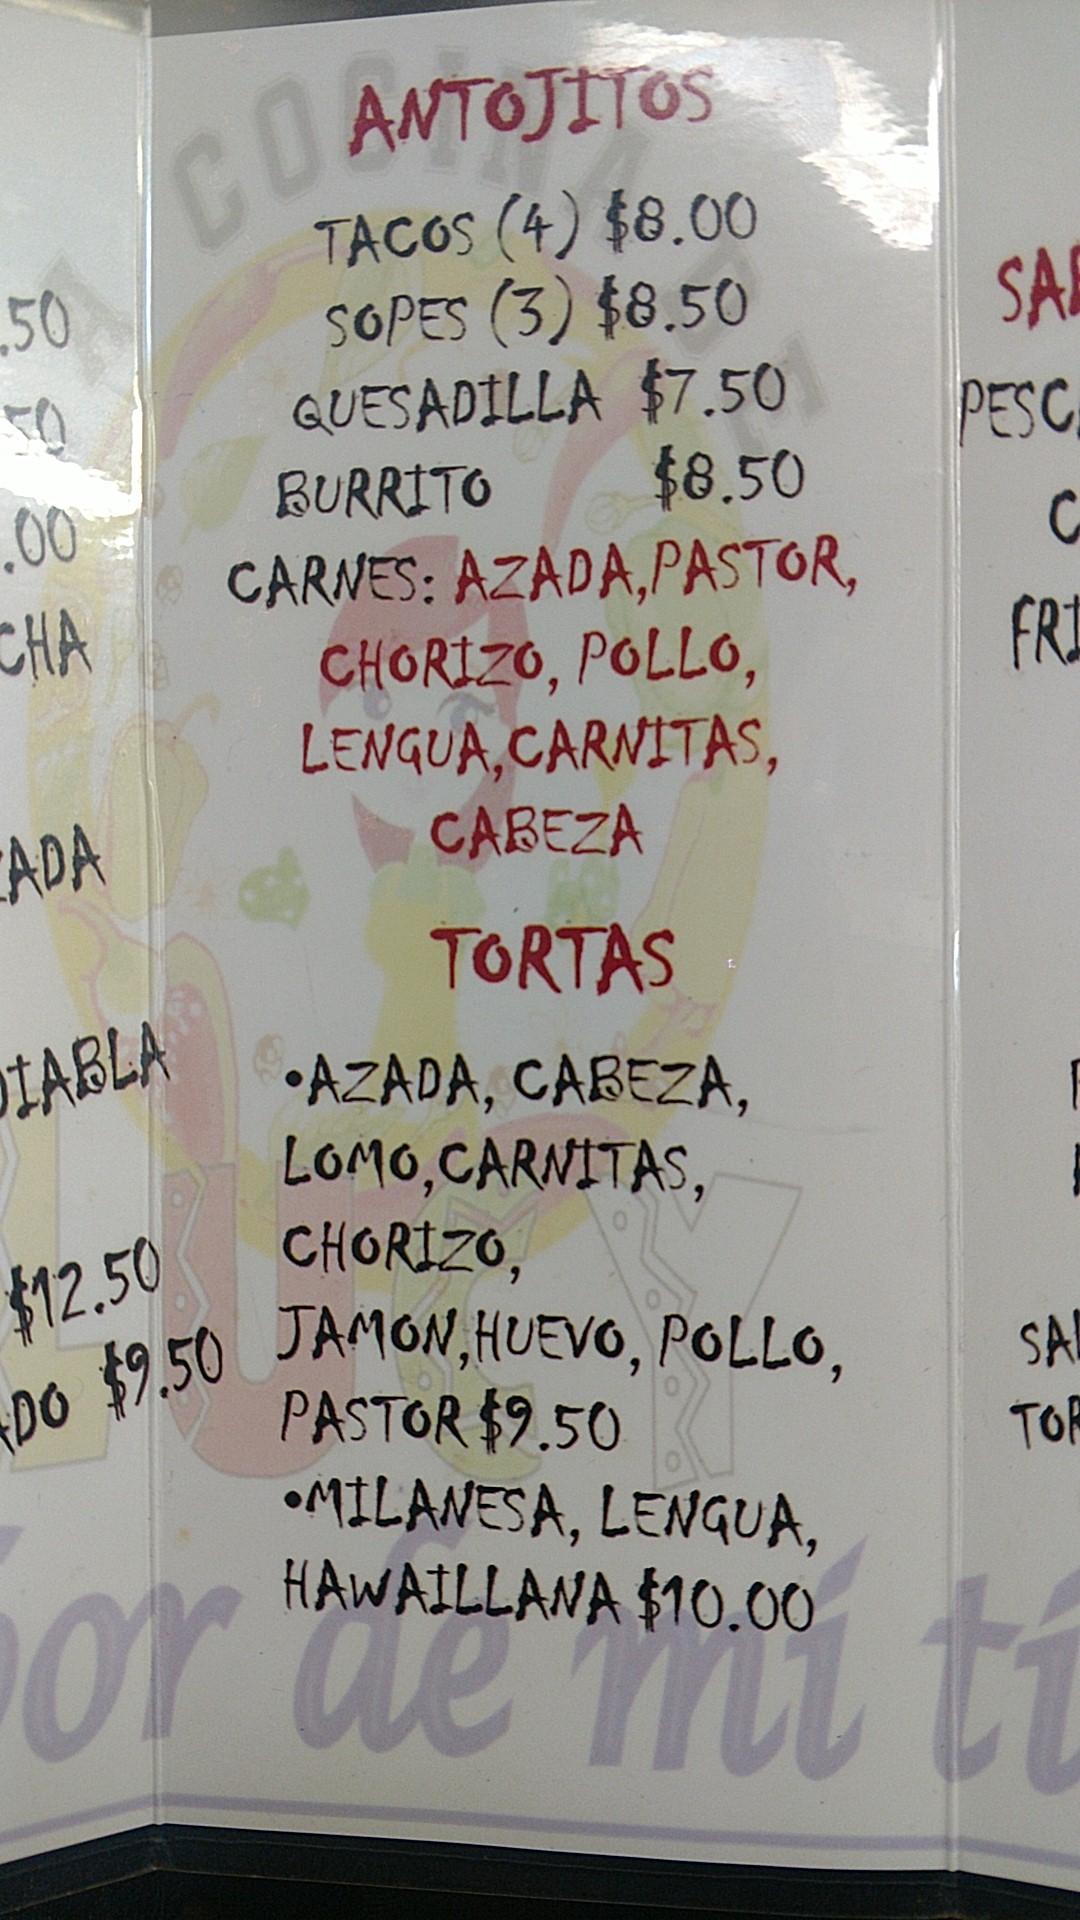 ANTOJITOS
TACOS (4) $8.00
SOPES (3) $8.50
QUESADILLA $7.50
BURRITO $8.50
CARNES: AZADA,PASTOR,
CHORIZO, POLLO,
LENGUA,CARNITAS,
CABEZA
TORTAS
•AZADA, CABEZA,
LOMO,CARNITAS,
CHORIZO,
JAMON,HUEVO, POLLO,
PASTOR $9.50
•MILANESA, LENGUA,
HAWAILLANA $10.00
COCINA DE
LUCY
de mi
.50
.50
.00
CHA
ADA
DIABLA
$12.50
ADO $9.50
PESC
FRI
TOR